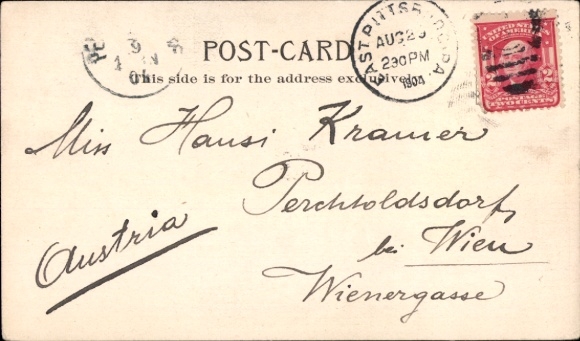 POST-CARD
This side is for the address exclusively.
EAST PITTSBURG, PA.
AUG 29
2 30 PM
1904
UNITED STATES
OF AMERICA
POSTAGE
TWO CENTS
Miss Hansi Kramer
Perchtoldsdorf,
bei Wien
Wienergasse
Austria